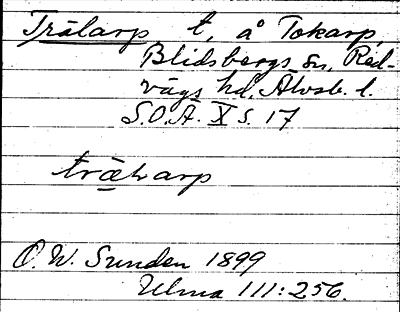 Trälarp t, å Tokarp,
Blidsbergs sn, Red-
vägs hd, Älvsb. l.
S.O.Ä. X s. 17
trälarp
O. W. Sunden 1899
Ulma 111:256.